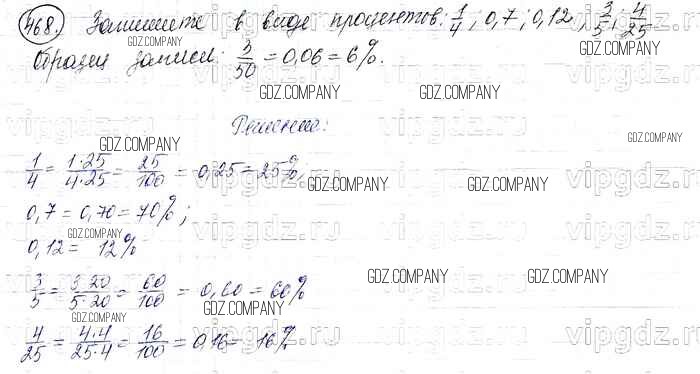 468. Запишите в виде процентов: 1/4; 0,7; 0,12; 3/5; 4/25
Образец записи: 3/50 = 0,06 = 6%.
Решение:
1/4 = 1·25/4·25 = 25/100 = 0,25 = 25%;
0,7 = 0,70 = 70%;
0,12 = 12%
3/5 = 3·20/5·20 = 60/100 = 0,60 = 60%
4/25 = 4·4/25·4 = 16/100 = 0,16 = 16%
GDZ.COMPANY
GDZ.COMPANY
GDZ.COMPANY
GDZ.COMPANY
GDZ.COMPANY
GDZ.COMPANY
GDZ.COMPANY
GDZ.COMPANY
GDZ.COMPANY
GDZ.COMPANY
GDZ.COMPANY
GDZ.COMPANY
GDZ.COMPANY
vipgdz.ru
vipgdz.ru
vipgdz.ru
vipgdz.ru
vipgdz.ru
vipgdz.ru
vipgdz.ru
vipgdz.ru
vipgdz.ru
vipgdz.ru